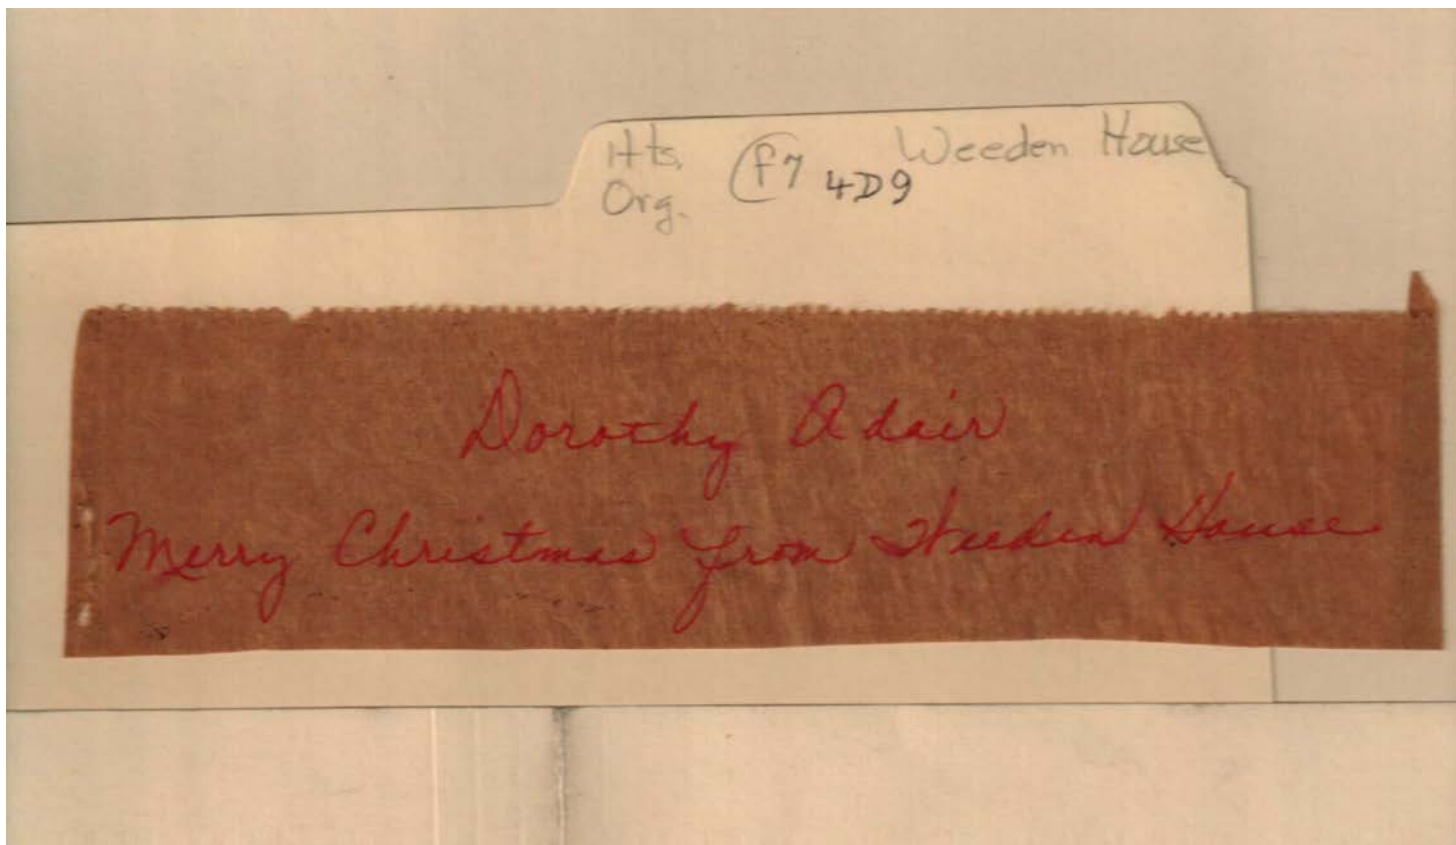 Hts. (f7 4D9 Weeden House
Org.
Dorothy Adair
Merry Christmas from Weeden House